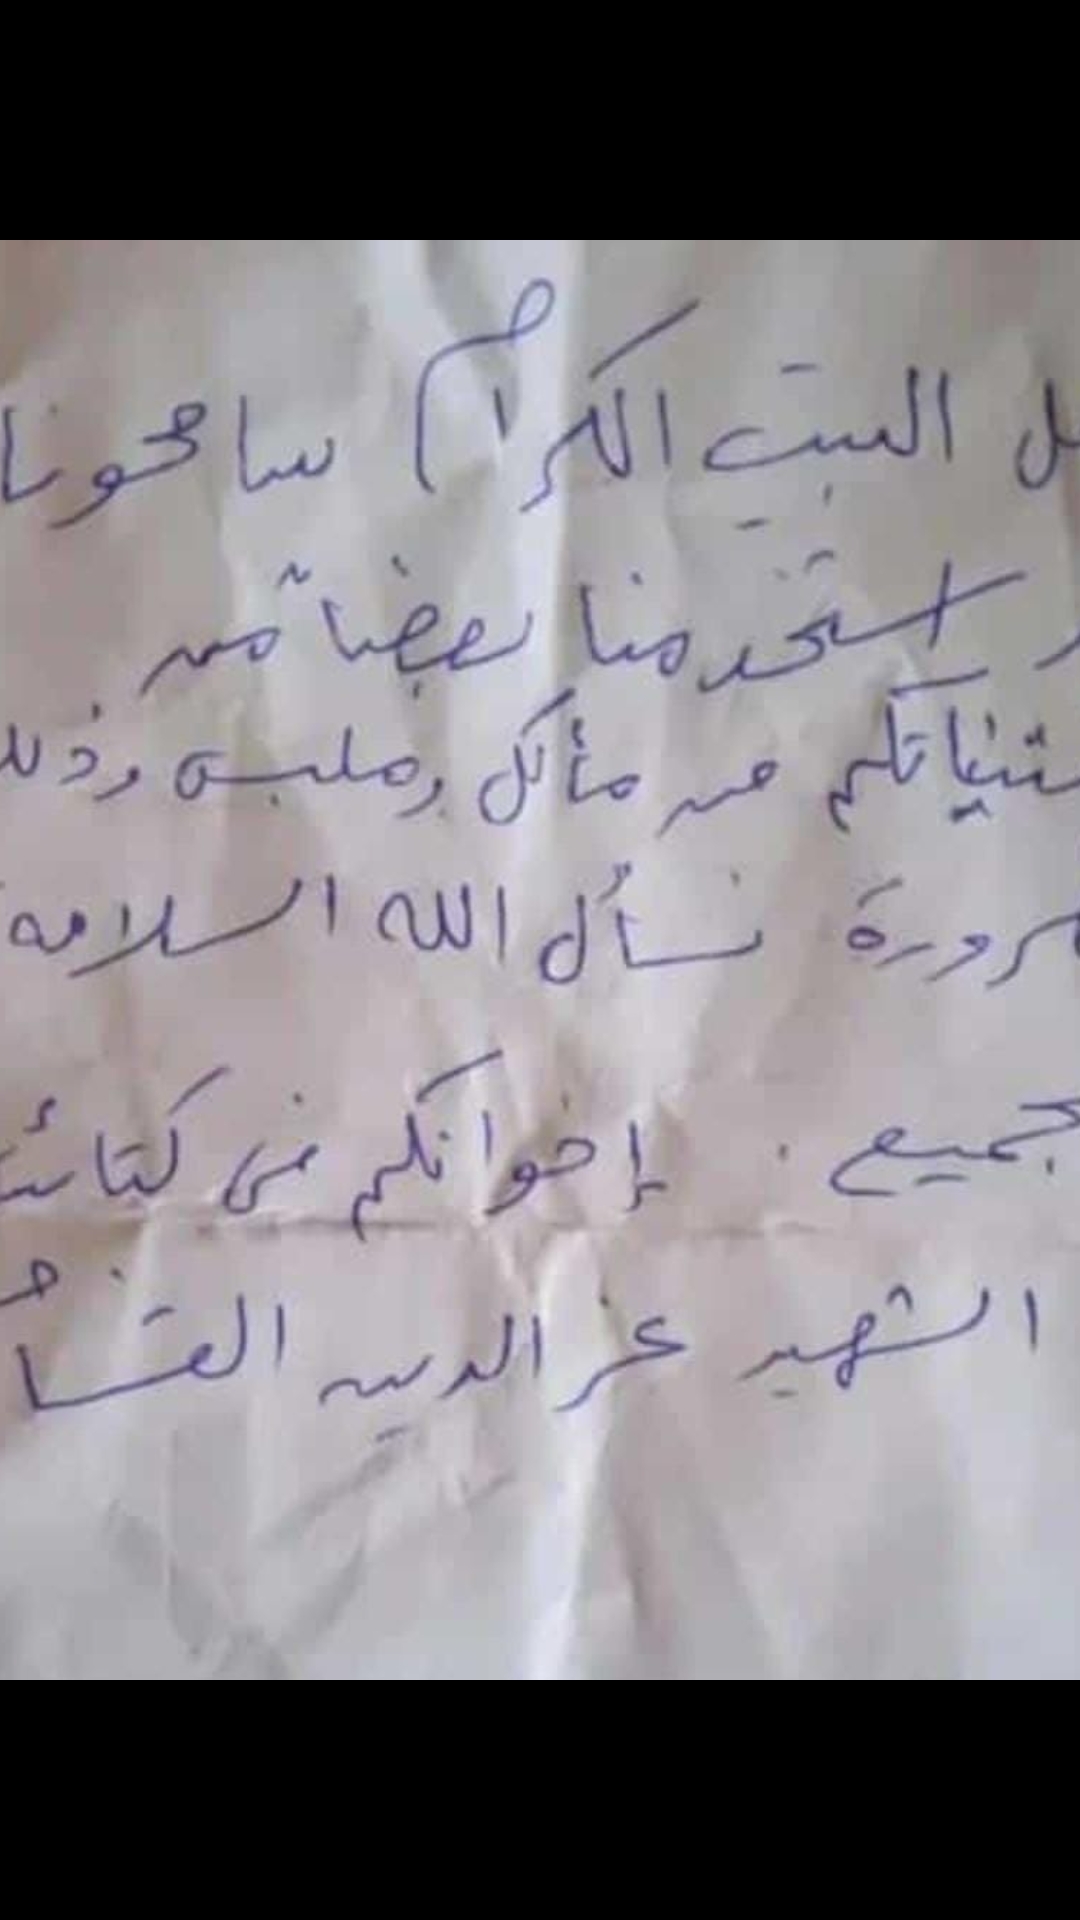 ل البيت الكرام سامحونا
استخدمنا بعضاً من
تنياتكم من مأكل وملبس وذلك
رورة نسأل الله السلامة
جميع . إخوانكم في كتائب
الشهيد عز الدين القسام